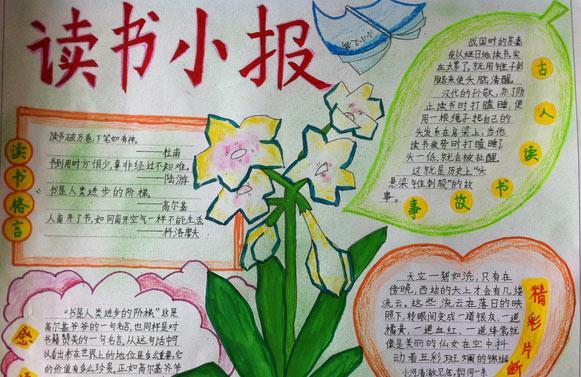 读书小报
读书格言
读书破万卷,下笔如有神。
——杜甫
书到用时方恨少,事非经过不知难。
——陆游
书是人类进步的阶梯。
——高尔基
人离开了书,如同离开空气一样不能生活
——科洛廖夫
古人读书故事
战国时的苏秦
夜以继日地读书,实
在太累了,就用锥子刺
腿来使头脑清醒。
汉代的孙敬,为了防
止读书时打瞌睡,便
用一根绳子把自己的
头发系在房梁上,当他
读书疲劳时打瞌睡了
头一低,就会被扯醒。
这就是历史上“头
悬梁、锥刺股”的故
事。
“书是人类进步的阶梯”这是
高尔基爷爷的一句名言,也同样是对
书籍赞美的一句名言,从这句话中可
以看出书在世界上的地位是多么重要,它
的价值有多么珍贵,正如高尔基爷爷
精彩片断
天空一碧如洗,只有在
傍晚,西边的天上才会有几缕
流云,这些流云在落日的映
照下,转眼间变成一道银灰、一道
橘黄、一道血红、一道绛紫,就
像是美丽的仙女在空中抖
动着五彩斑斓的锦缎